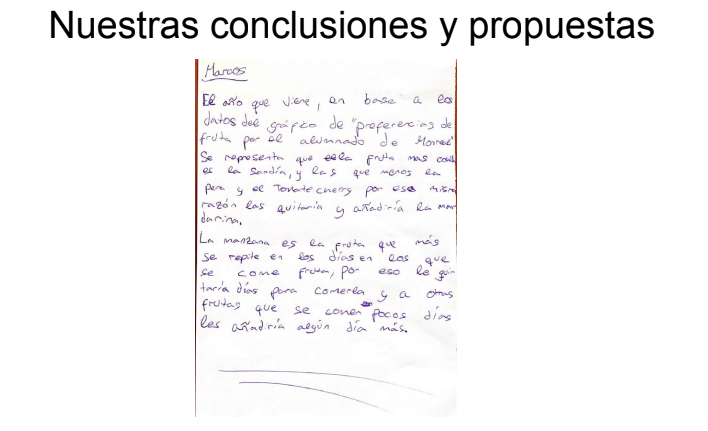 Nuestras conclusiones y propuestas
Marcos
El año que viene, en base a los
datos del gráfico de "preferencias de
fruta por el alumnado de
Se representa que la fruta mas
es la Sandía, y las que menos la
pera y el Tomate cherry por esa misma
razón las quitaría y añadiría la man
darina.
La manzana es la fruta que más
se repite en los días en los que
se come fruta, por eso le qui
taría días para comerla y a otras
frutas que se comen pocos días
les añadiría algún día más.